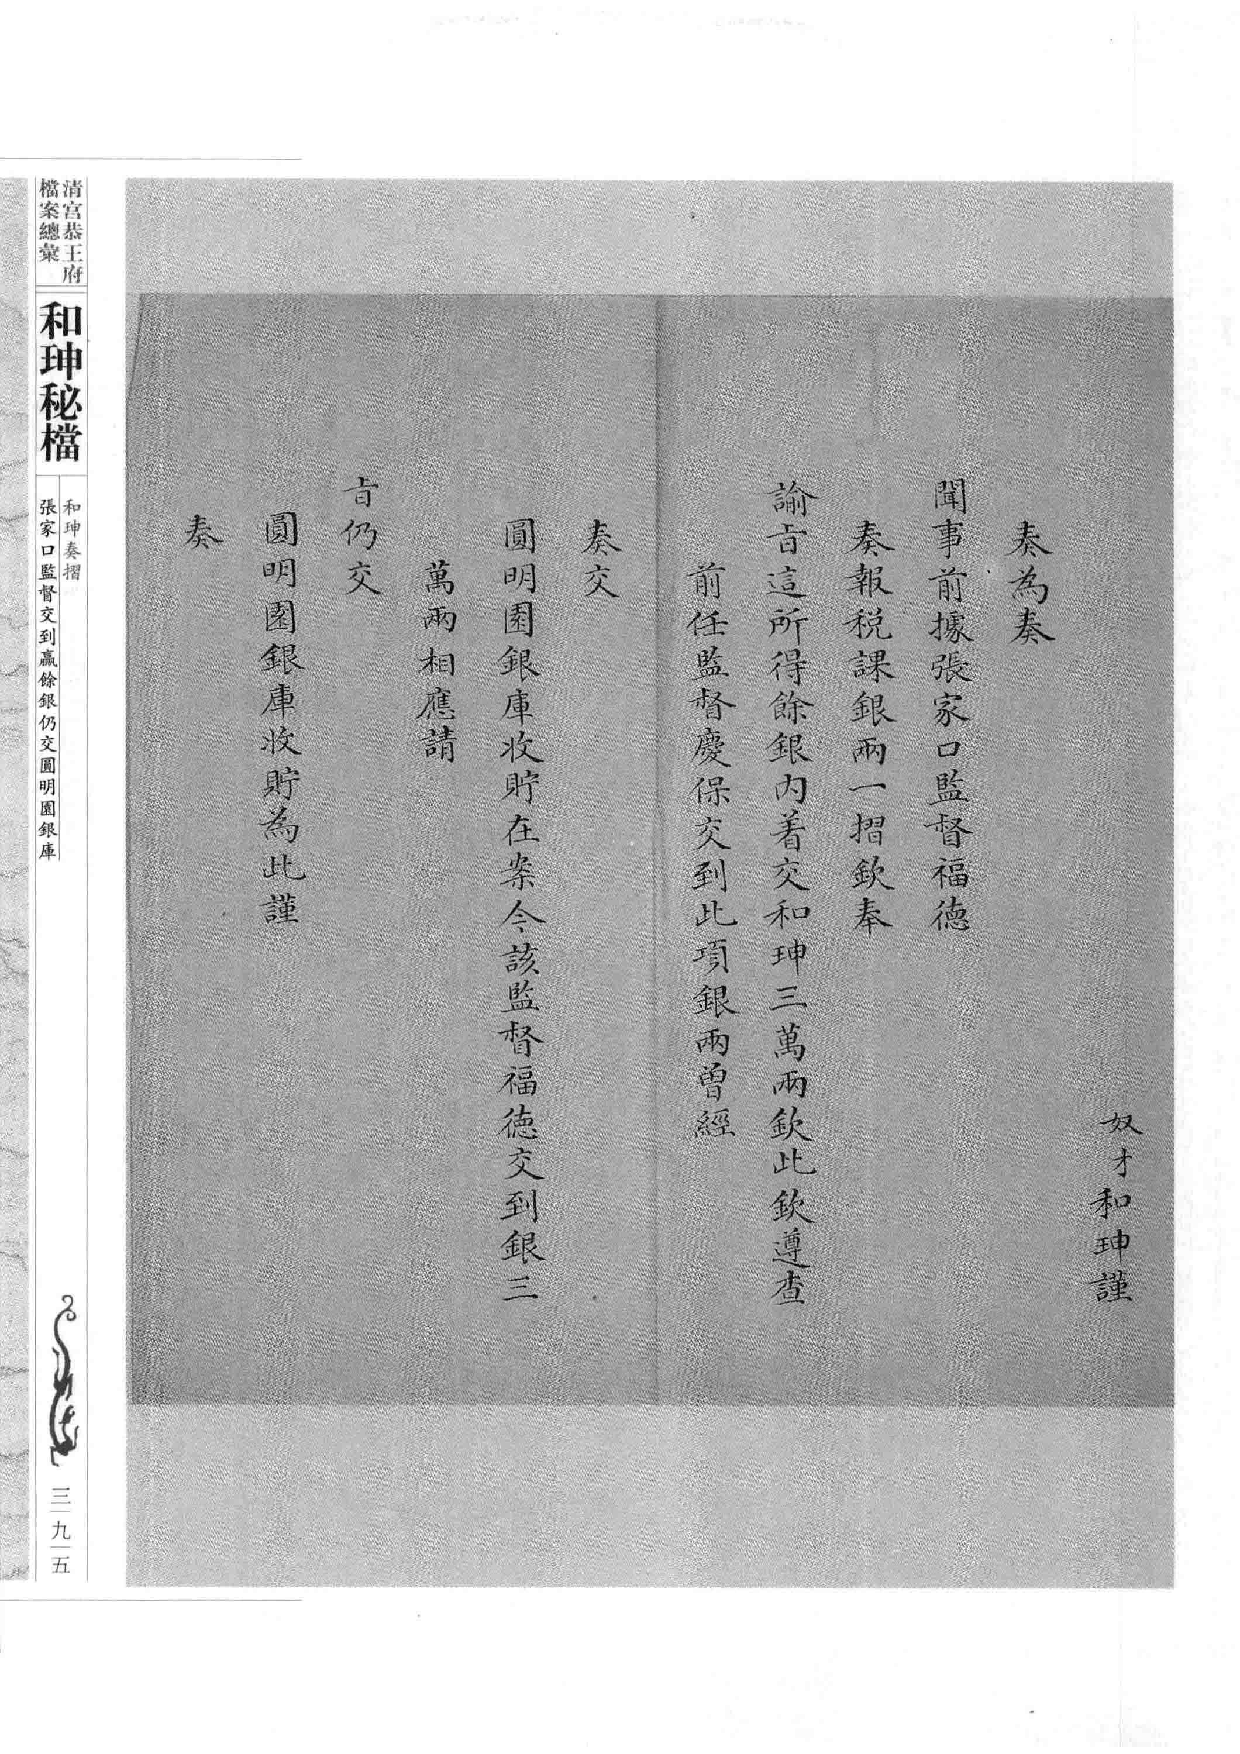 奴才和珅謹
奏為奏
聞事前據張家口監督福德
奏報税課銀兩一摺欽奉
諭旨這所得餘銀内着交和珅三萬兩欽此欽遵查
前任監督慶保交到此項銀兩曾經
奏交
圓明園銀庫收貯在案今該監督福德交到銀三
萬兩相應請
旨仍交
圓明園銀庫收貯為此謹
奏
清宮恭王府
檔案總彙
和珅秘檔
和珅奏摺
張家口監督交到贏餘銀仍交圓明園銀庫
三九五